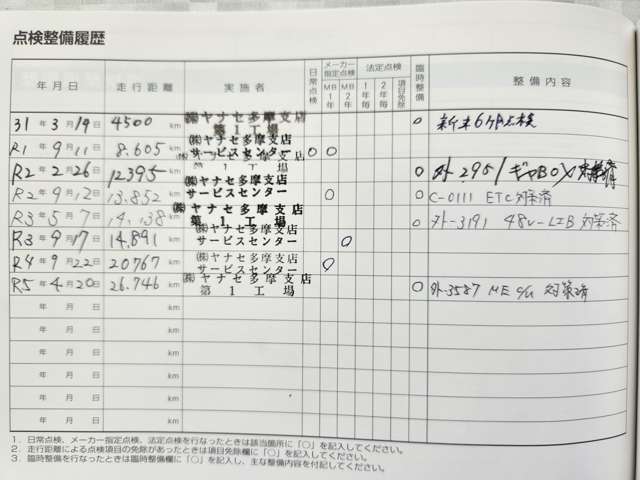 点検整備履歴
年月日 走行距離 実施者 日常点検 メーカー指定点検 MB1年 MB2年 法定点検 1年毎 2年毎 項目免除 臨時整備 整備内容
31年3月19日 4500 km ㈱ヤナセ多摩支店 第1工場 ○ 新車6ヶ月点検
R1年9月11日 8.605 km ㈱ヤナセ多摩支店 サービスセンター ○ ○
R2年2月26日 12395 km ㈱ヤナセ多摩支店 第1工場 ○ 外-2951 ギヤBOX対策済
R2年9月12日 13.852 km ㈱ヤナセ多摩支店 サービスセンター ○ ○ C-0111 ETC対策済
R3年5月7日 14,138 km ㈱ヤナセ多摩支店 第1工場 ○ 外-3191 48V-LIB対策済
R3年9月17日 14.891 km ㈱ヤナセ多摩支店 サービスセンター ○
R4年9月22日 20767 km ㈱ヤナセ多摩支店 サービスセンター ○
R5年4月20日 26.746 km ㈱ヤナセ多摩支店 第1工場 ○ 外-3587 ME 対策済
年月日 km
年月日 km
年月日 km
年月日 km
年月日 km
年月日 km
1. 日常点検、メーカー指定点検、法定点検を行なったときは該当箇所に「○」を記入してください。
2. 走行距離による点検項目の免除があったときは項目免除欄に「○」を記入してください。
3. 臨時整備を行なったときは臨時整備欄に「○」を記入し、主な整備内容を付記してください。